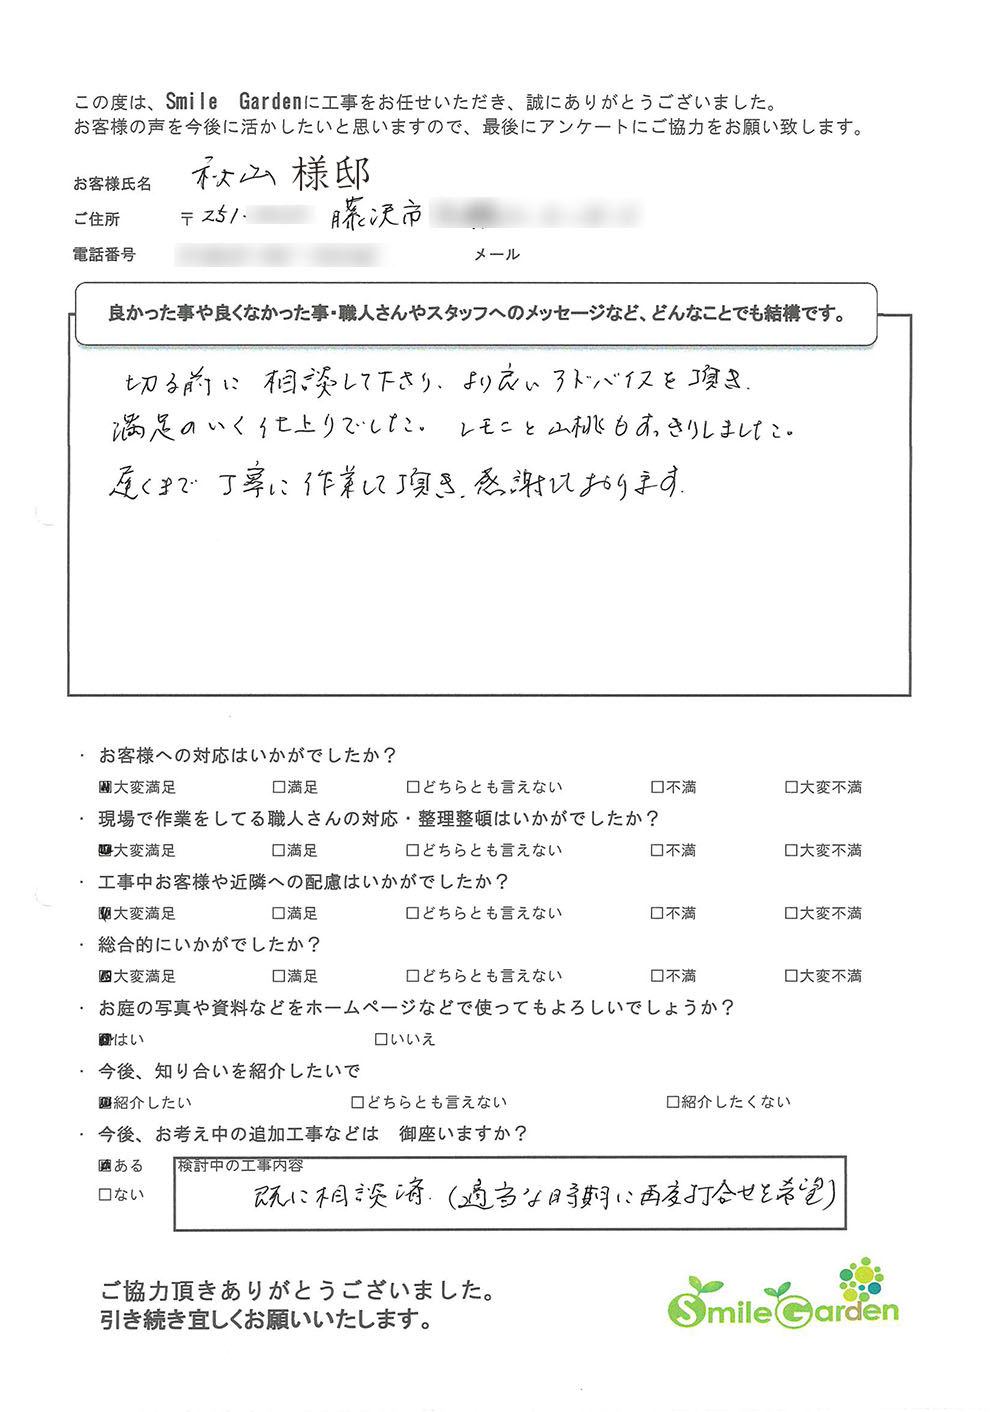 この度は、Smile Gardenに工事をお任せいただき、誠にありがとうございました。
お客様の声を今後に活かしたいと思いますので、最後にアンケートにご協力をお願い致します。
お客様氏名 秋山 様邸
ご住所 〒251- 藤沢市
電話番号 メール
良かった事や良くなかった事・職人さんやスタッフへのメッセージなど、どんなことでも結構です。
切る前に相談して下さり、より良いアドバイスを頂き、
満足のいく仕上りでした。レモンと山桃もすっきりしました。
遅くまで丁寧に作業して頂き、感謝しております。
・ お客様への対応はいかがでしたか？
■大変満足 □満足 □どちらとも言えない □不満 □大変不満
・ 現場で作業をしてる職人さんの対応・整理整頓はいかがでしたか？
■大変満足 □満足 □どちらとも言えない □不満 □大変不満
・ 工事中お客様や近隣への配慮はいかがでしたか？
■大変満足 □満足 □どちらとも言えない □不満 □大変不満
・ 総合的にいかがでしたか？
■大変満足 □満足 □どちらとも言えない □不満 □大変不満
・ お庭の写真や資料などをホームページなどで使ってもよろしいでしょうか？
■はい □いいえ
・ 今後、知り合いを紹介したいで
■紹介したい □どちらとも言えない □紹介したくない
・ 今後、お考え中の追加工事などは 御座いますか？
■ある 検討中の工事内容
□ない 既に相談済.(適当な時期に再度打合せを希望)
ご協力頂きありがとうございました。
引き続き宜しくお願いいたします。
Smile Garden